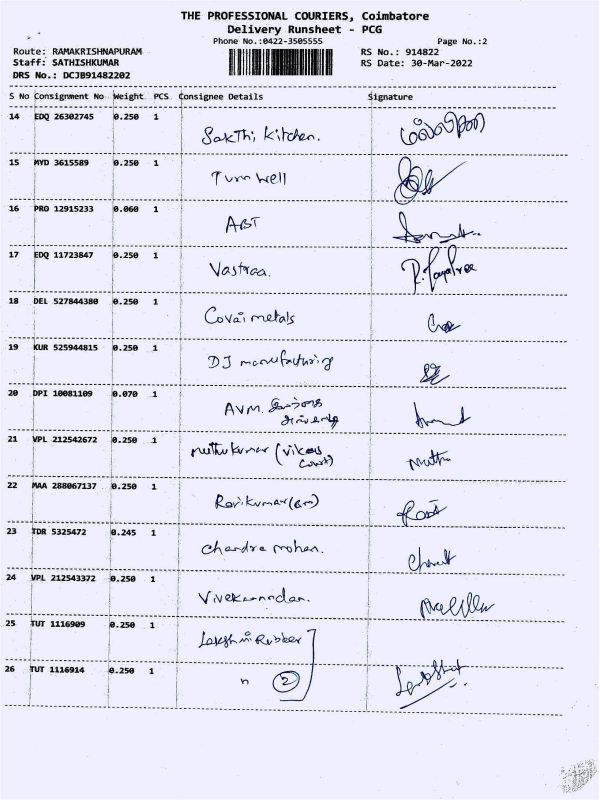 THE PROFESSIONAL COURIERS, Coimbatore
Delivery Runsheet - PCG
Phone No.:0422-3505555 Page No.:2
Route: RAMAKRISHNAPURAM RS No.: 914822
Staff: SATHISHKUMAR RS Date: 30-Mar-2022
DRS No.: DCJB91482202
S No Consignment No Weight PCS Consignee Details Signature
14 EDQ 26302745 0.250 1
Sakthi Kitchen.
15 MYD 3615589 0.250 1
Turn well
16 PRO 12915233 0.060 1
ABT
17 EDQ 11723847 0.250 1
Vastraa. R. Jayasree
18 DEL 527844380 0.250 1
Covai metals
19 KUR 525944815 0.250 1
DJ manufacturing
20 DPI 10081109 0.070 1
AVM.
21 VPL 212542672 0.250 1
muthukumar (vikas Muthu
court)
22 MAA 288067137 0.250 1
Ravikumar(Bm) Ravi
23 TDR 5325472 0.245 1
Chandra mohan.
24 VPL 212543372 0.250 1
Vivekanandan.
25 TUT 1116909 0.250 1
Lakshmi Rubber
26 TUT 1116914 0.250 1
" 2